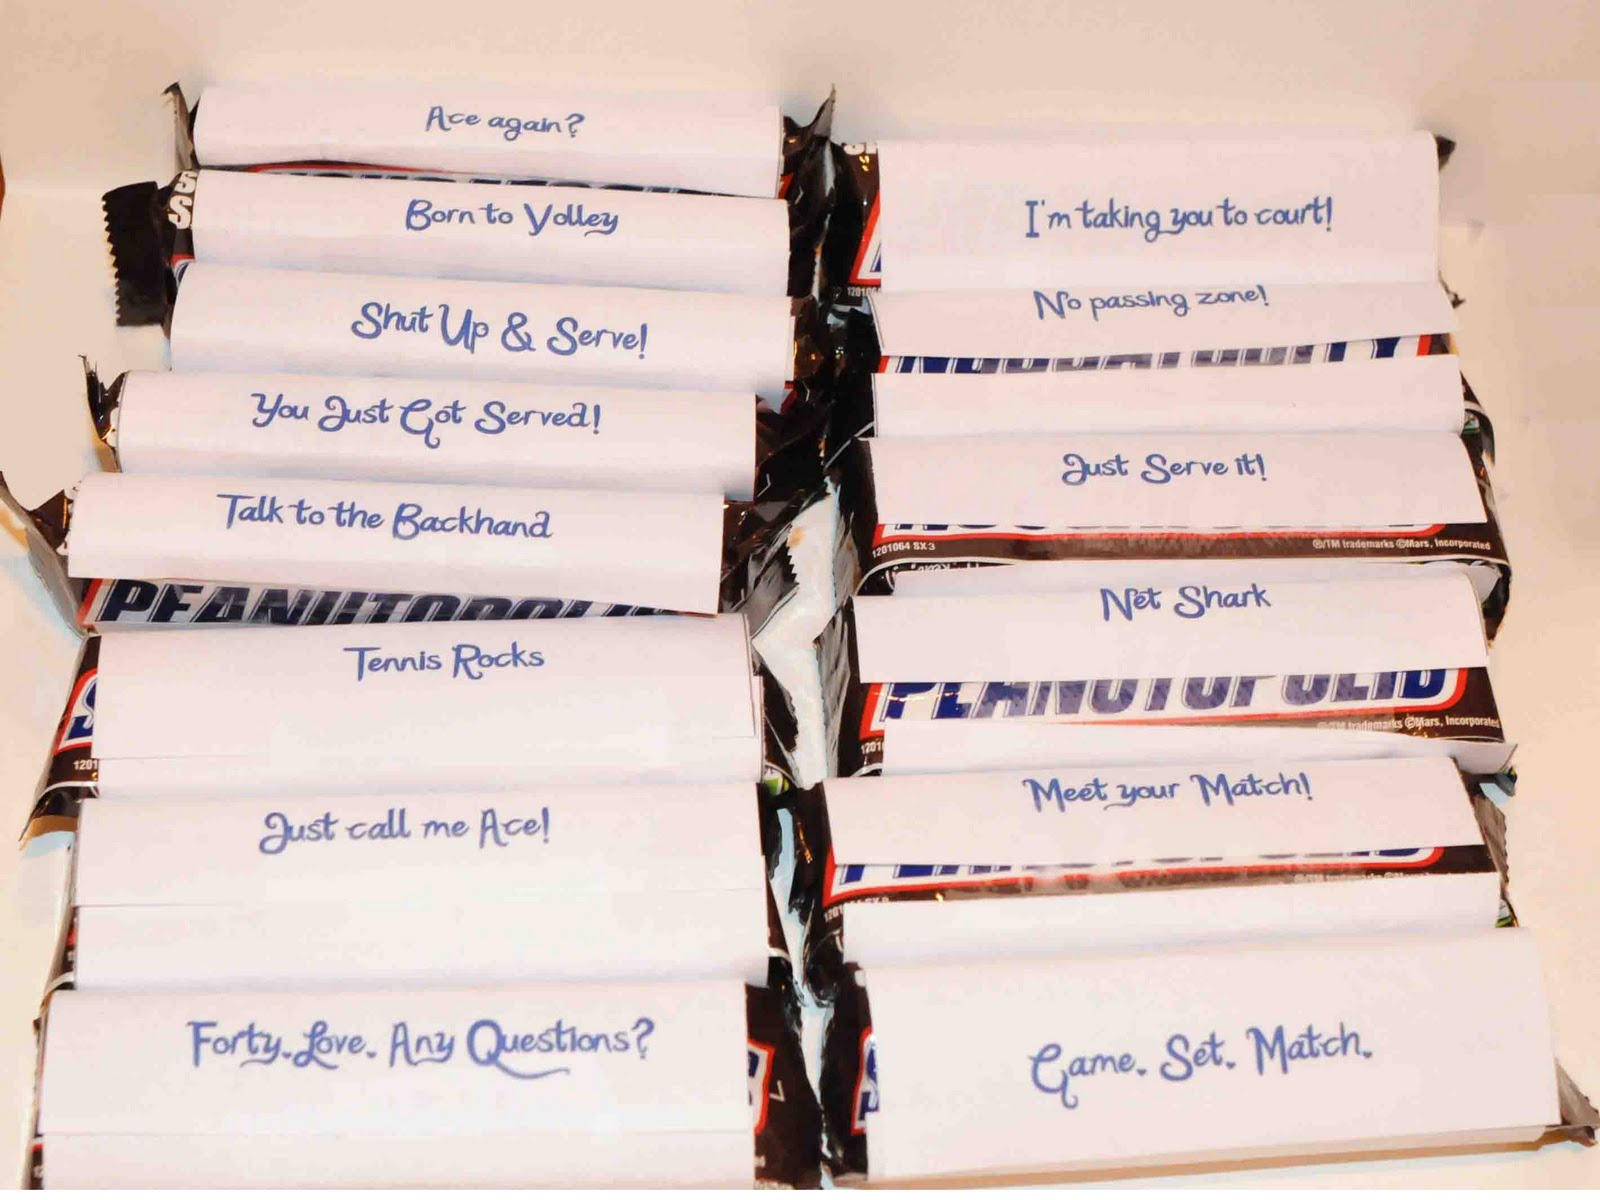 Ace again?
Born to Volley
Shut Up & Serve!
You Just Got Served!
Talk to the Backhand
PEANUTOPOLIS
Tennis Rocks
1201
Just call me Ace!
Forty. Love. Any Questions?
I'm taking you to court!
No passing zone!
Just Serve it!
1201064 SX 3
®/TM trademarks ©Mars, Incorporated
Net Shark
PEANUTOPOLIS
®/TM trademarks ©Mars, Incorporated
1201
Meet your Match!
Game. Set. Match.